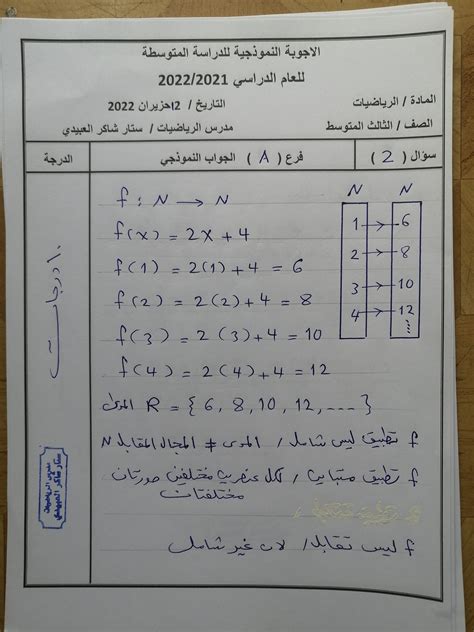 الاجوبة النموذجية للدراسة المتوسطة
للعام الدراسي 2022/2021
المادة / الرياضيات
التاريخ / 12حزيران 2022
الصف / الثالث المتوسط
مدرس الرياضيات / ستار شاكر العبيدي
سؤال ( 2 )
فرع ( A ) الجواب النموذجي
الدرجة
f : N → N
f(x) = 2x + 4
f(1) = 2(1) + 4 = 6
f(2) = 2(2) + 4 = 8
f(3) = 2(3) + 4 = 10
f(4) = 2(4) + 4 = 12
المدى R = { 6, 8, 10, 12, ... }
N N
1 → 6
2 → 8
3 → 10
4 → 12
f تطبيق ليس شامل / المدى ≠ المجال المقابل N
f تطبيق متباين / لكل عنصرين مختلفين صورتان
مختلفتان
f ليس تقابل / لانه غير شامل
١٠ درجات
مدرس الرياضيات
ستار شاكر العبيدي